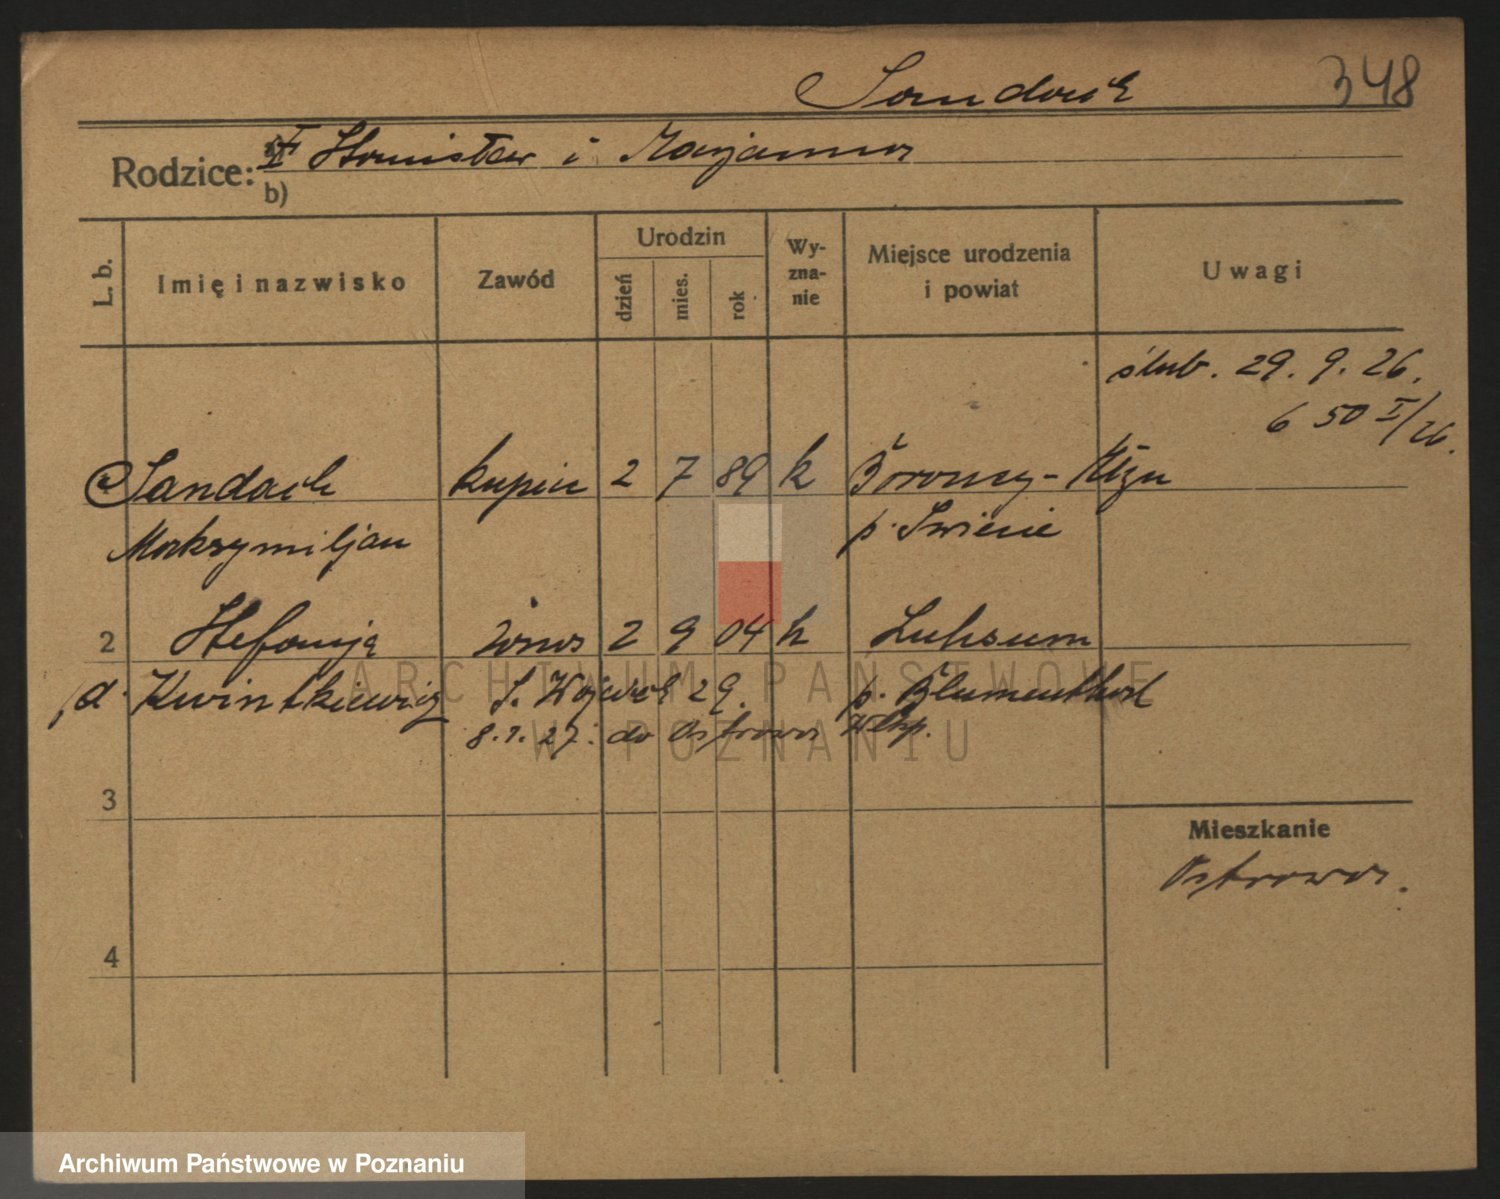 Sandach 348
Rodzice: a) Stanisław i Marjanna
b)
L. b. Imię i nazwisko Zawód Urodzin dzień mies. rok Wyznanie Miejsce urodzenia i powiat Uwagi
ślub. 29. 9. 26.
650 I/26.
Sandach kupiec 2 7 89 k
Maksymiljan p. Świecie
2 Stefanja żona 2 9 04 k
d. Kwintkiewicz 29. p. Blumenthal
8. 1. 27. do Ostrowa Wlkp.
3
Mieszkanie
Ostrowa.
4
ARCHIWUM PAŃSTWOWE
W POZNANIU
Archiwum Państwowe w Poznaniu